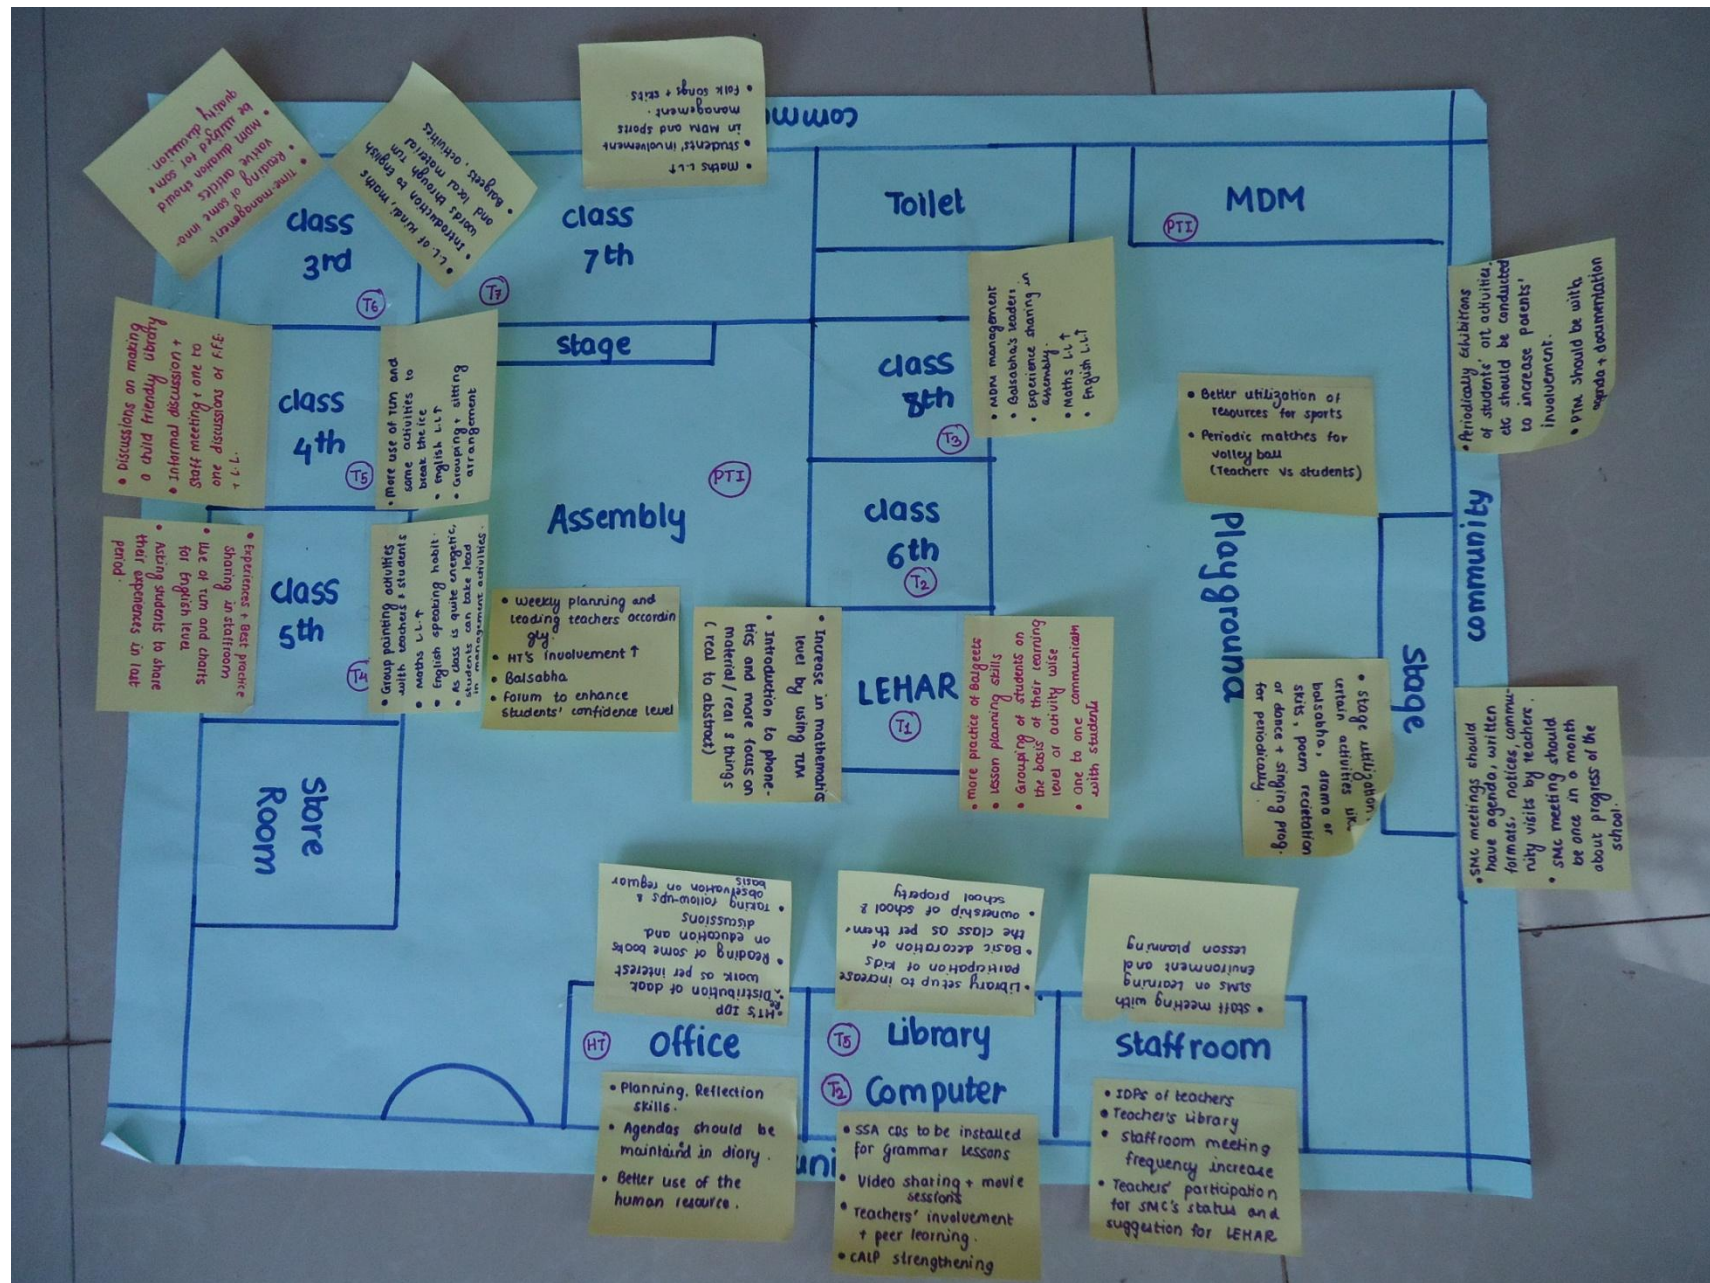 commu
Time-management
Reading of some inno-
vative articles
MDM duration should
be utilized for some
quality discussion.
L.L. of Hindi, maths
Introduction to English
words through TLM
and local material
Balgeets, activities
Maths L.L↑
Students' involvement
in MDM and sports
management.
Folk songs + skits
class
3rd
T6
class
7th
T7
Toilet
MDM
PTI
Discussions on making
a child friendly library
Informal discussion +
Staff meeting + one to
one discussions of F.F.E.
+ L.L.
class
4th
T5
More use of TLM and
some activities to
break the ice
English L.L↑
Grouping + sitting
arrangement
stage
class
8th
T3
MDM management
Balsabha's leaders
Experience sharing in
assembly.
Maths L.L↑
English L.L↑
Better utilization of
resources for sports
Periodic matches for
volley ball
(Teachers Vs students)
Periodically Exhibitions
of students' art activities,
etc should be conducted
to increase parents'
involvement.
PTM should be with
agenda + documentation
community
Experiences + Best practice
sharing in staffroom
Use of TLM and charts
for English level
Asking students to share
their experiences in last
period.
class
5th
T4
Group painting activities
with teachers + students
Maths L.L↑
English speaking habit.
As class is quite energetic,
students can take lead
in management activities.
PTI
Assembly
Weekly planning and
leading teachers accordin
gly.
HT'S involvement ↑
Balsabha
Forum to enhance
students' confidence level
class
6th
T2
Playground
Stage
Increase in mathematics
level by using TLM
Introduction to phone-
tics and more focus on
material/real things
(real to abstract)
LEHAR
T1
More practice of Balgeets
Lesson planning skills
Grouping of students on
the basis of their learning
level or activity wise
One to one communicatn
with students
Stage utilization
certain activities like
balsabha, drama or
skits, poem recietation
or dance + singing prog.
for periodically.
SMC meetings should
have agenda, written
formats, notices, commu-
nity visits by teachers.
SMC meeting should
be once in a month
about progress of the
school.
Store
Room
HT'S IDP
Distribution of daak
work as per interest
Reading of some books
on education and
discussions
Taking follow-ups &
observation on regular
basis
Library setup to increase
participation of kids
Basic decoration of
the class as per them.
ownership of school &
school property
Staff meeting with
SLMs on Learning
environment and
lesson planning
HT
Office
T5
Library
T2
Computer
Staffroom
Planning, Reflection
skills.
Agendas should be
maintaind in diary.
Better use of the
human resource.
uni
SSA CDs to be installed
for grammar lessons
Video sharing + movie
sessions
Teachers' involvement
+ peer learning.
CALP strengthening
IDPs of teachers
Teacher's Library
Staffroom meeting
frequency increase
Teachers' participation
for SMC's status and
suggestion for LEHAR